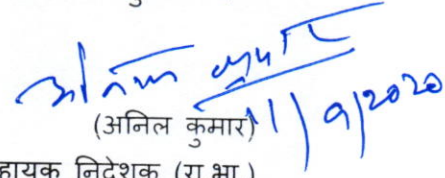 अनिल कुमार
11/9/2020
(अनिल कुमार)
हायक निदेशक (रा.भा.)